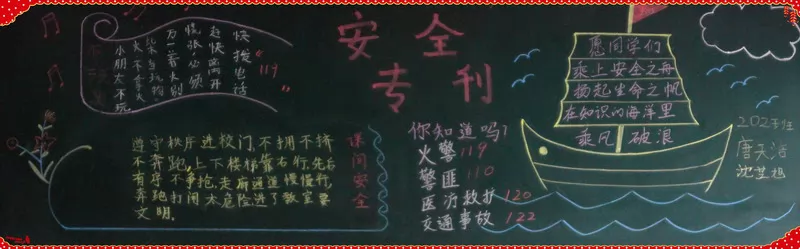 安全
专刊
快拨电话
“119”
赶快离开
慌张必须
万一着火别
火不玩火
小朋友不玩
课间安全
遵守秩序进校门,不拥不挤
不奔跑,上下楼梯靠右行,先后
有序不争抢,走廊通道慢慢行,
奔跑打闹太危险进了教室要
文明。
你知道吗?
火警119
警匪110
医疗救护120
交通事故122
愿同学们
乘上安全之舟
扬起生命之帆
在知识的海洋里
乘风破浪